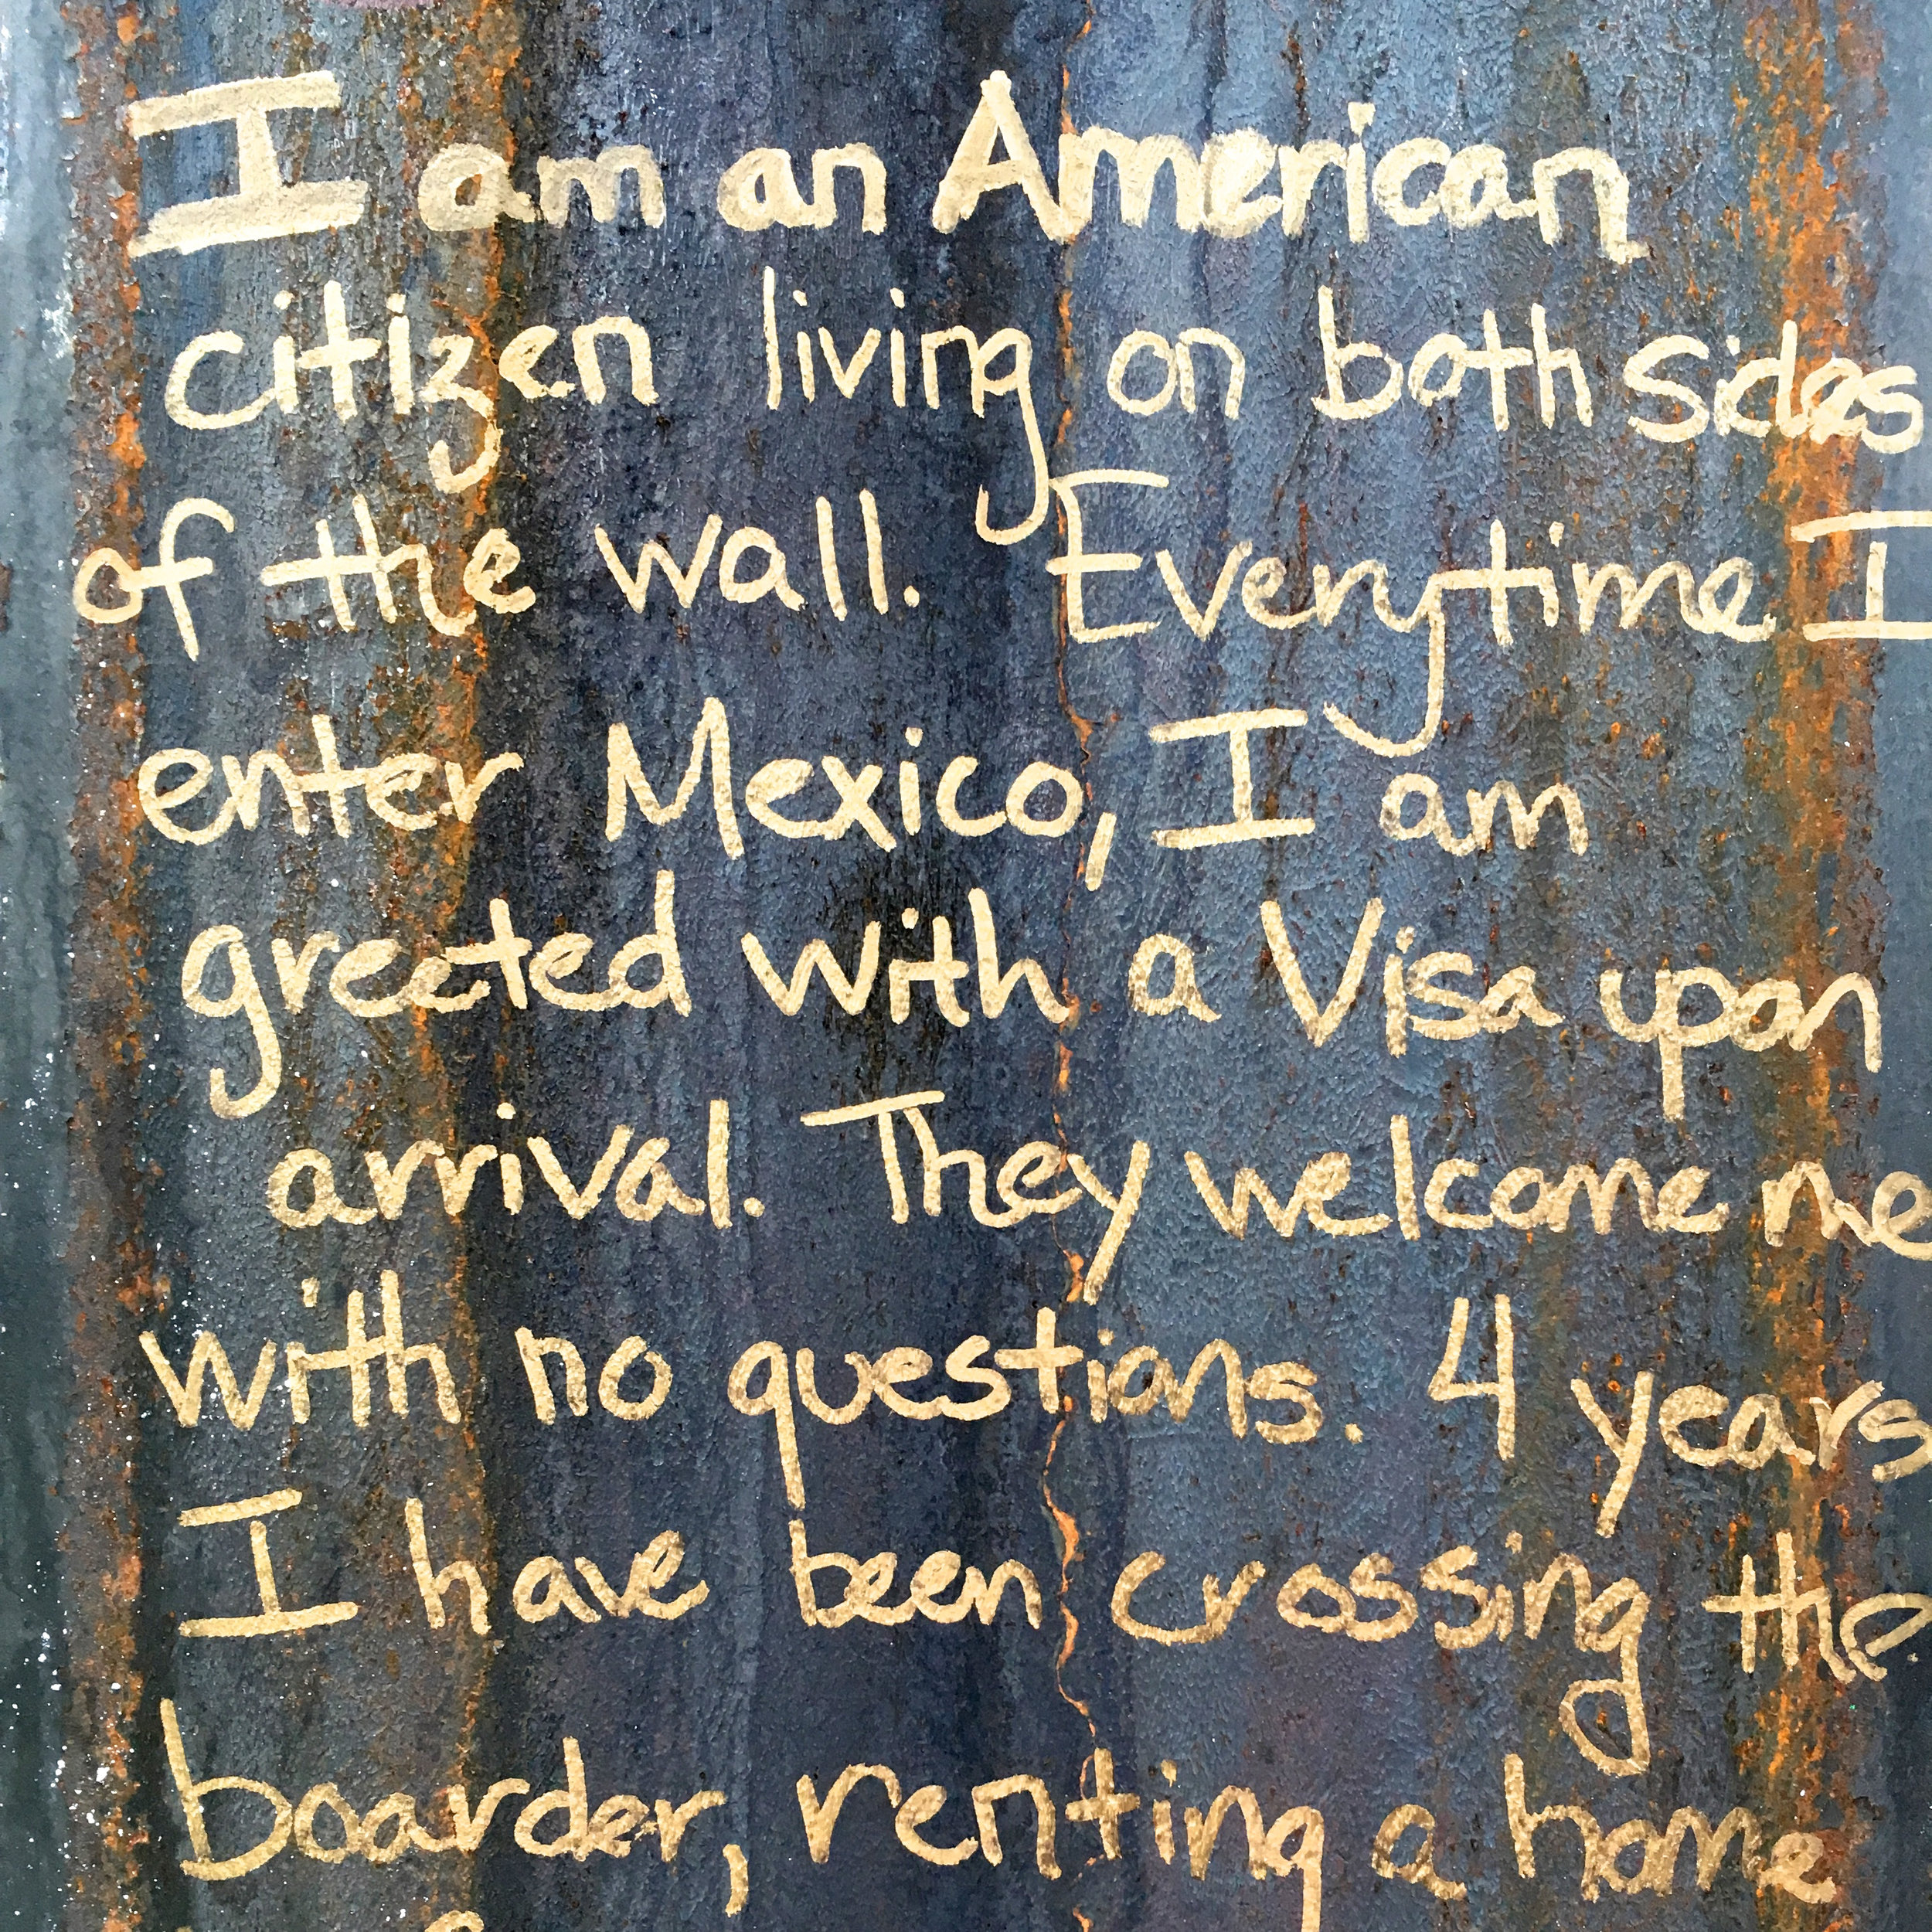 I am an American
citizen living on both sides
of the wall. Everytime I
enter Mexico, I am
greeted with a Visa upon
arrival. They welcome me
with no questions. 4 years
I have been crossing the
boarder, renting a home